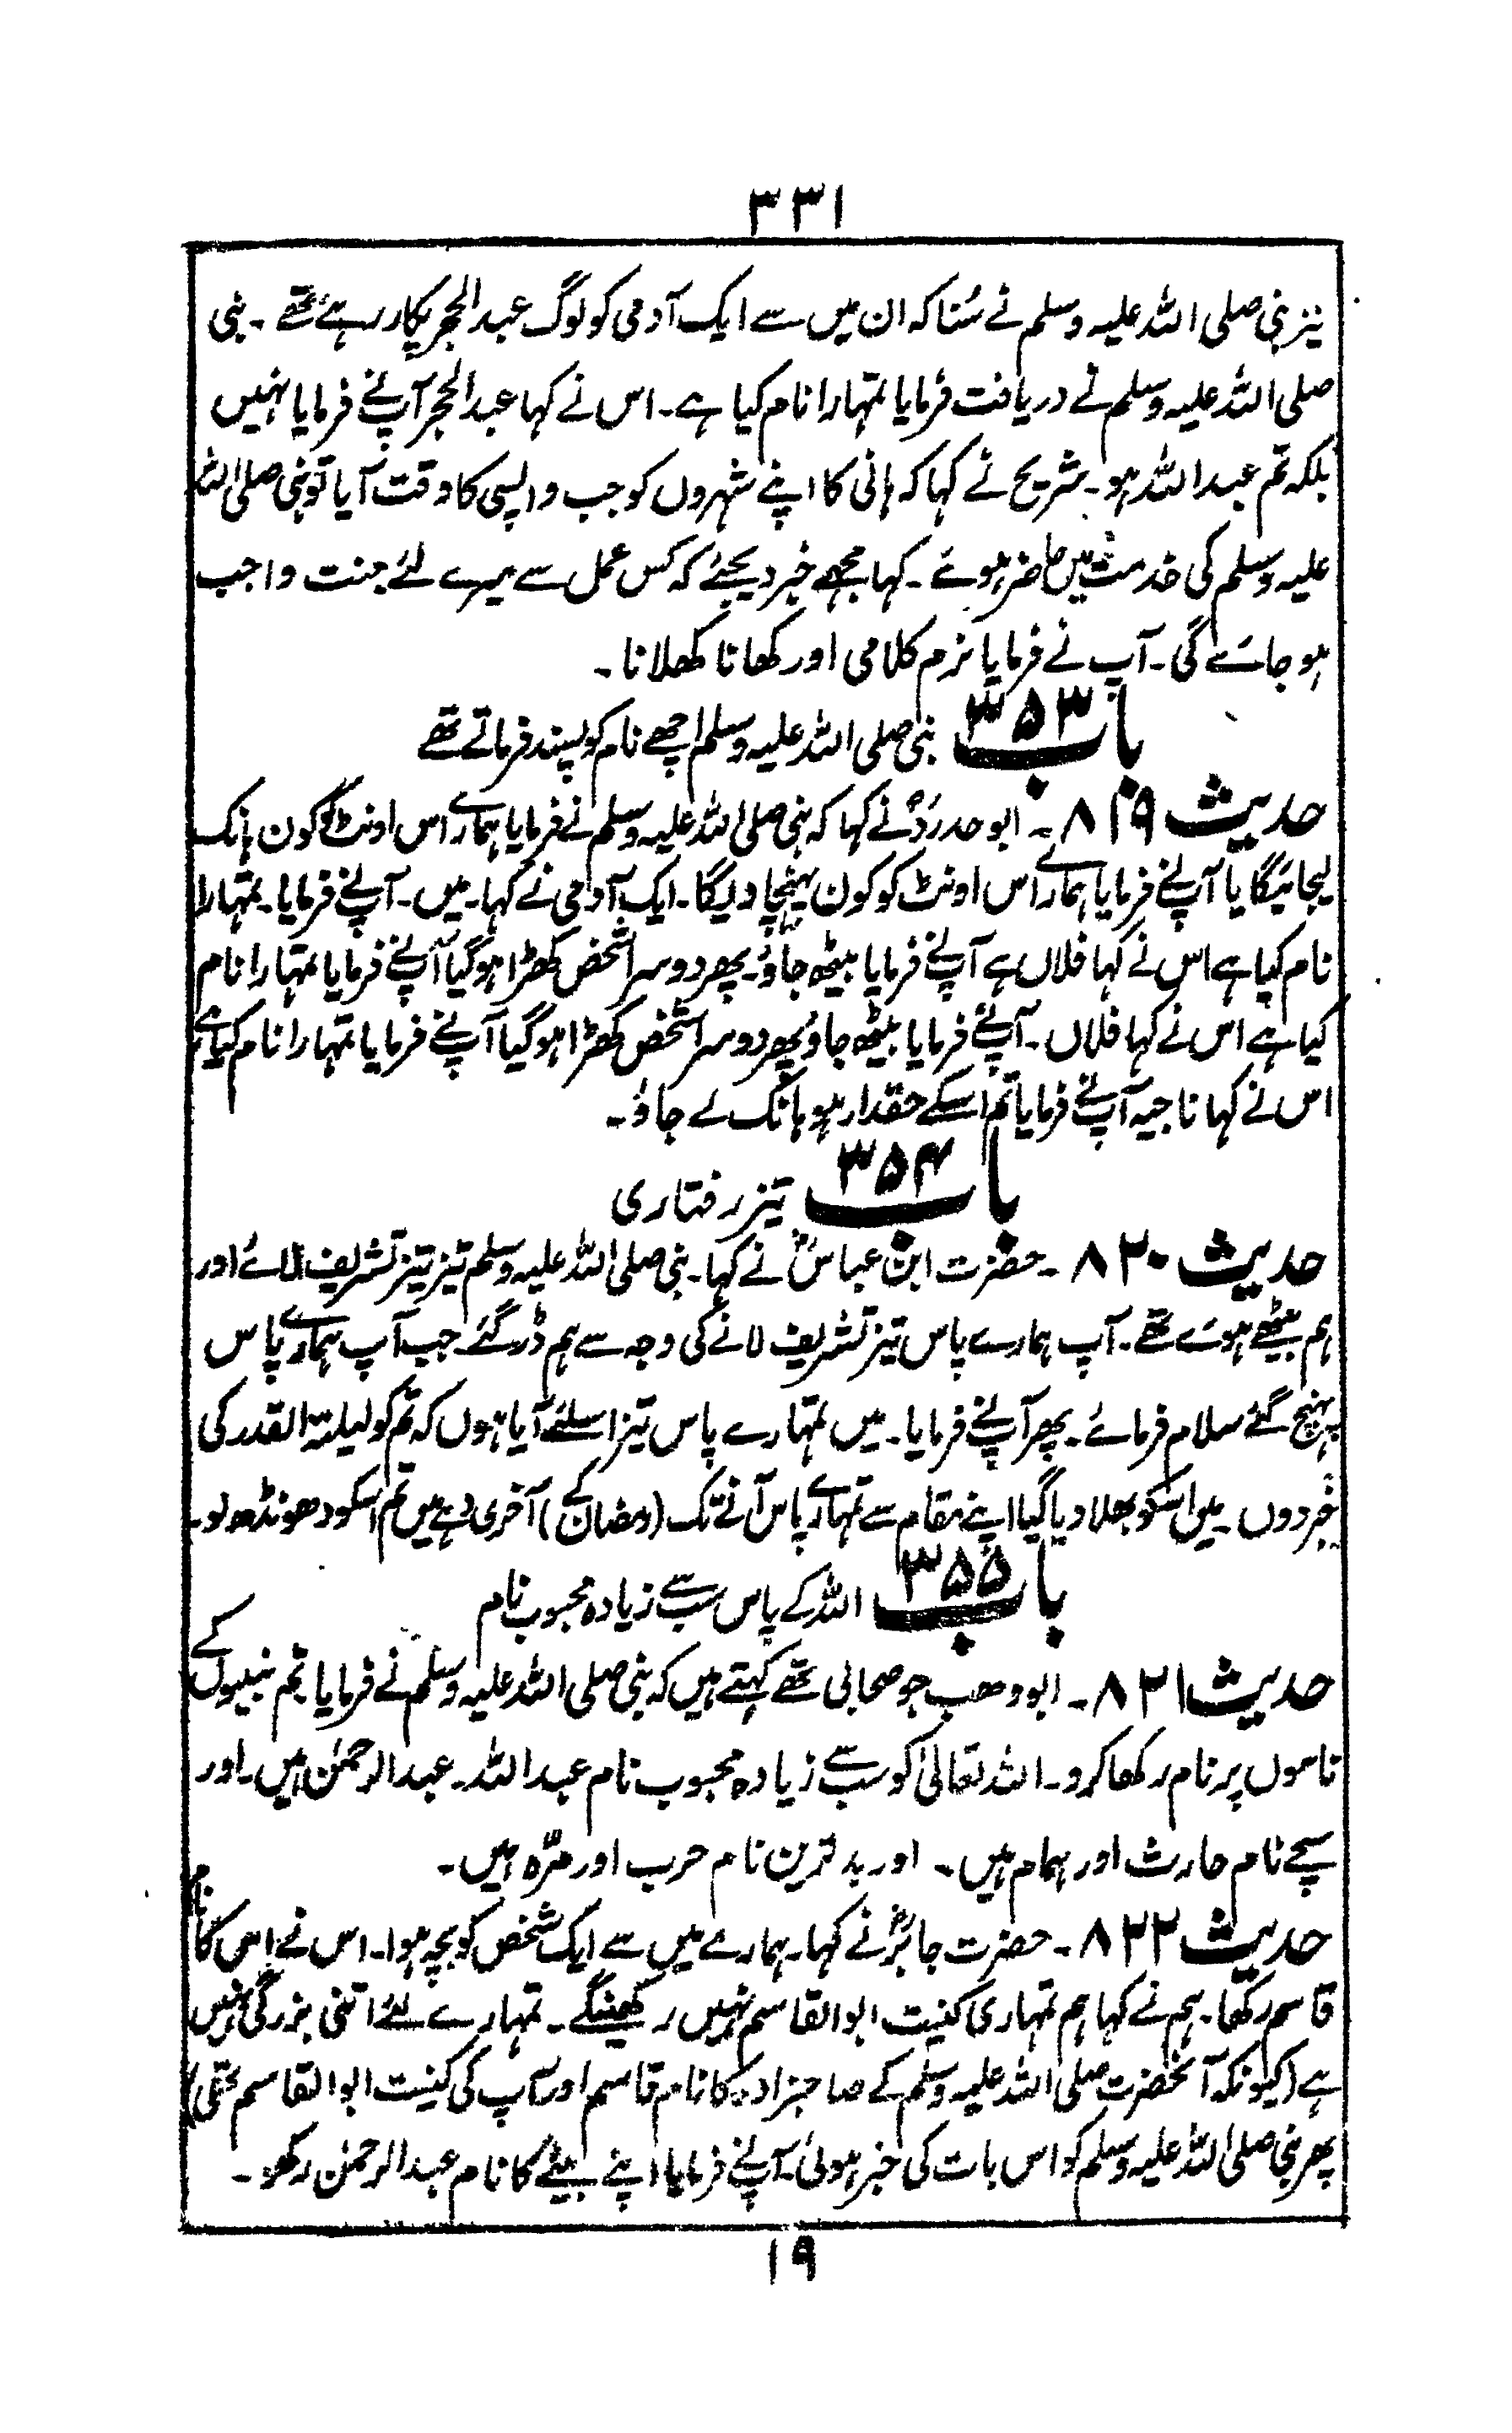 ۳۳۱
نیز نبی صلی اللہ علیہ وسلم نے سُنا کہ ان میں سے ایک آدمی کو لوگ عبدالحجر پکار رہے تھے ۔ نبی
صلی اللہ علیہ وسلم نے دریافت فرمایا تمہارا نام کیا ہے۔ اس نے کہا عبدالحجر آپ نے فرمایا نہیں
بلکہ تم عبداللہ ہو۔ شریح نے کہا کہ ہانی کا اپنے شہروں کو جب واپسی کا وقت آیا تو نبی صلی اللہ
علیہ وسلم کی خدمت میں حاضر ہوئے ۔ کہا مجھے خبر دیجئے کہ کس عمل سے میرے لئے جنت واجب
ہو جائے گی۔ آپ نے فرمایا نرم کلامی اور کھانا کھلانا ۔
باب ۳۵۳ نبی صلی اللہ علیہ وسلم اچھے نام کو پسند فرماتے تھے
حدیث ۸۱۹ ۔ ابو حدردؓ نے کہا کہ نبی صلی اللہ علیہ وسلم نے فرمایا ہمارے اس اونٹ کو کون ہانک
لیجائیگا یا آپ نے فرمایا ہمارے اس اونٹ کو کون پہنچا دیگا۔ ایک آدمی نے کہا۔ میں۔ آپ نے فرمایا۔ تمہارا
نام کیا ہے اس نے کہا فلاں ہے آپ نے فرمایا بیٹھ جاؤ۔ پھر دوسرا شخص کھڑا ہوگیا آپ نے فرمایا تمہارا نام
کیا ہے اس نے کہا فلاں ۔ آپ نے فرمایا بیٹھ جاؤ پھر دوسرا شخص کھڑا ہوگیا آپ نے فرمایا تمہارا نام کیا ہے
اس نے کہا ناجیہ آپ نے فرمایا تم اسکے حقدار ہو ہانک لے جاؤ ۔
باب ۳۵۴ تیز رفتاری
حدیث ۸۲۰ ۔ حضرت ابن عباسؓ نے کہا۔ نبی صلی اللہ علیہ وسلم تیز تیز تشریف لائے اور
ہم بیٹھے ہوئے تھے۔ آپ ہمارے پاس تیز تشریف لانے کی وجہ سے ہم ڈر گئے۔ جب آپ ہمارے پاس
پہنچ گئے سلام فرمائے ۔ پھر آپ نے فرمایا۔ میں تمہارے پاس تیز اسلئے آیا ہوں کہ تم کو لیلۃ القدر کی
خبر دوں ۔ میں اسکو بھلا دیا گیا اپنے مقام سے تمہارے پاس آنے تک (رمضان کے) آخری دہے میں تم اسکو دھونڈھ لو۔
باب ۳۵۵ اللہ کے پاس سب سے زیادہ محبوب نام
حدیث ۸۲۱ ۔ ابو وھب جو صحابی تھے کہتے ہیں کہ نبی صلی اللہ علیہ وسلم نے فرمایا تم نبیوں کے
ناموں پر نام رکھا کرو۔ اللہ تعالیٰ کو سب سے زیادہ محبوب نام عبداللہ۔ عبدالرحمٰن ہیں۔ اور
سچے نام حارث اور ہمام ہیں ۔ اور بدترین نام حرب اور مرّہ ہیں ۔
حدیث ۸۲۲ ۔ حضرت جابرؓ نے کہا۔ ہمارے میں سے ایک شخص کو بچہ ہوا۔ اس نے اس کا نام
قاسم رکھا۔ ہم نے کہا ہم تمہاری کنیت ابوالقاسم نہیں رکھینگے ۔ تمہارے لئے اتنی بزرگی نہیں
ہے (کیونکہ آنحضرت صلی اللہ علیہ وسلم کے صاحبزادہ کا نام قاسم اور آپ کی کنیت ابوالقاسم تھی)
پھر نبی صلی اللہ علیہ وسلم کو اس بات کی خبر ہوئی۔ آپ نے فرمایا اپنے بیٹے کا نام عبدالرحمٰن رکھو ۔
۱۹